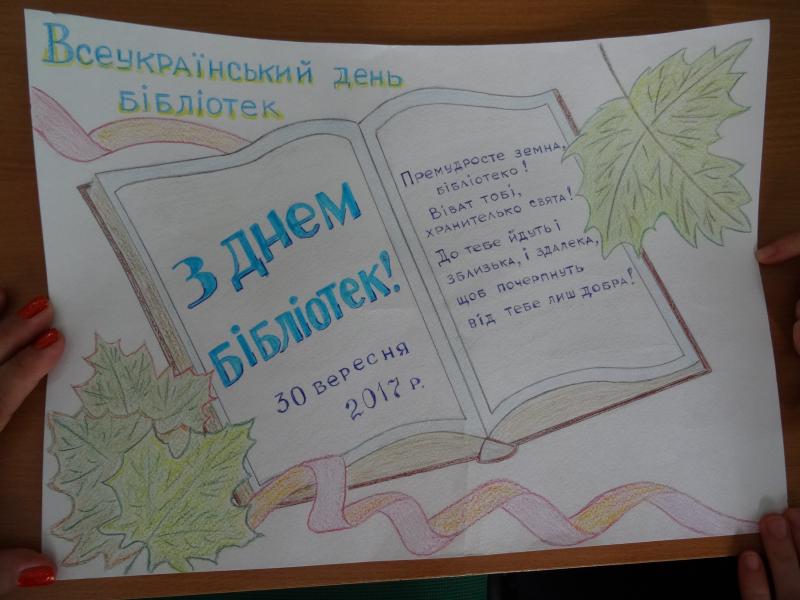 Всеукраїнський день
бібліотек
З днем
бібліотек!
30 вересня
2017 р.
Премудросте земна,
бібліотеко!
Віват тобі,
хранителько свята!
До тебе йдуть і
зблизька, і здалека,
щоб почерпнуть
від тебе лиш добра!